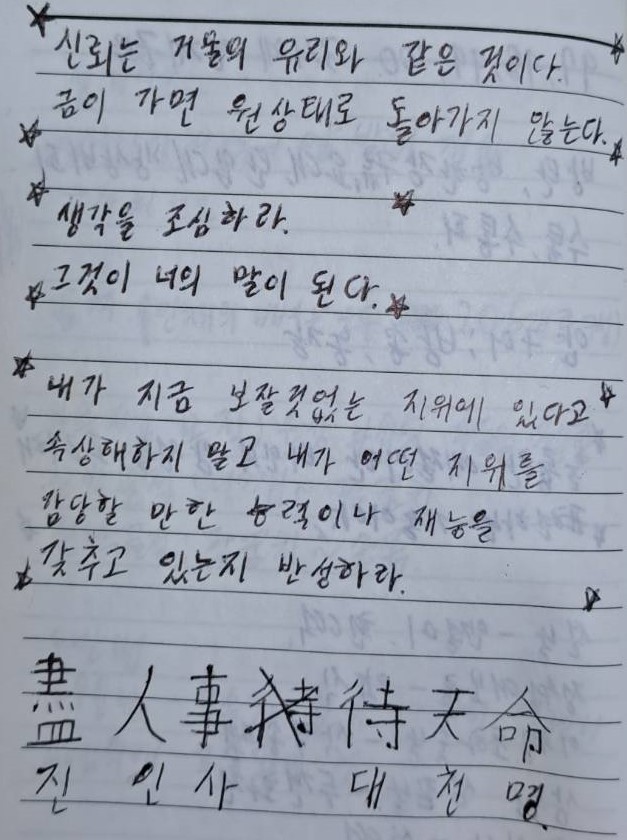 신뢰는 거울의 유리와 같은 것이다.
금이 가면 원상태로 돌아가지 않는다.
생각을 조심하라.
그것이 너의 말이 된다.
내가 지금 보잘것없는 지위에 있다고
속상해하지 말고 내가 어떤 지위를
감당할 만한 능력이나 재능을
갖추고 있는지 반성하라.
盡人事待天命
진인사 대천명